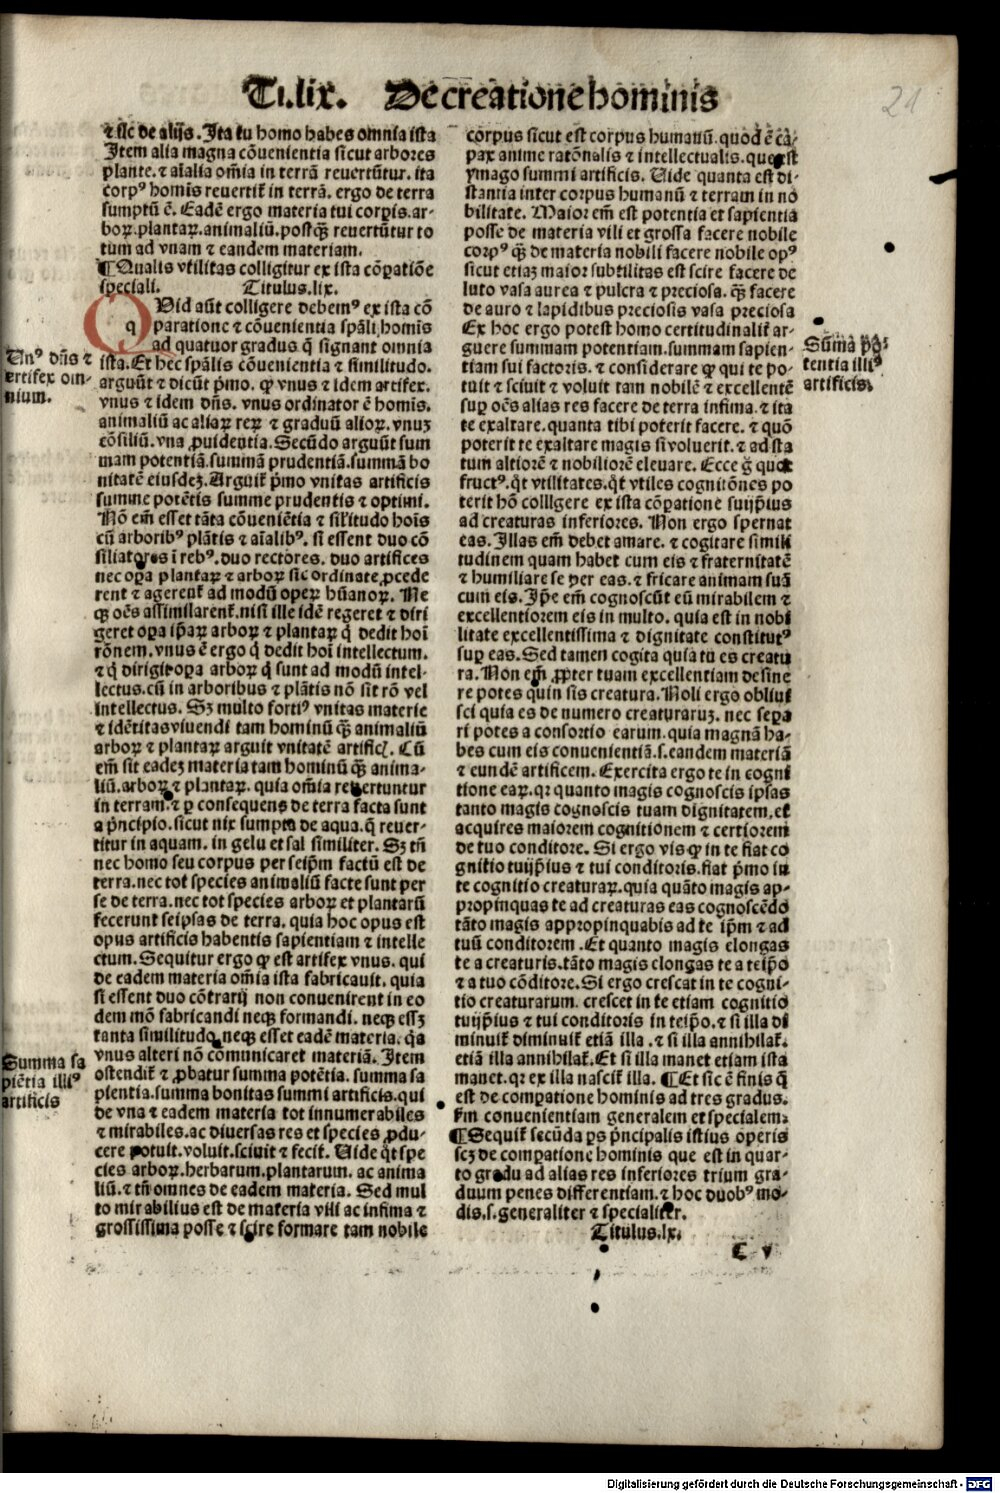 Ti.lix. De creatione hominis
21
⁊ sic de alijs. Ita tu homo habes omnia ista
Item alia magna cōuenientia sicut arbores
plante. ⁊ aīalia om̄ia in terrā reuertūtur. ita
corpꝰ homīs reuertit̄ in terrā. ergo de terra
sumptū ē. Eadē ergo materia tui corpis. ar-
boꝝ. plantaꝝ. animaliū. postq̄ꝫ reuertūtur to
tum ad vnam ⁊ eandem materiam.
¶Qualis vtilitas colligitur ex ista cōpatiōe
speciali. Titulus.lix.
QVid aūt colligere debemꝰ ex ista cō
q paratione ⁊ cōuenientia spāli hominis
ad quatuor gradus q̄ signant omnia
ista. Et hec spālis cōuenientia ⁊ similitudo.
arguūt ⁊ dicūt p̄mo. ꝙ vnus ⁊ idem artifex.
vnus ⁊ idem dn̄s. vnus ordinator ē homīs.
animaliū ac aliaꝝ reꝝ ⁊ graduū alioꝝ. vnuꝫ
cōsiliū. vna ꝓuidentia. Secūdo arguūt sum
mam potentiā. summā prudentiā. summā bo
nitatē eiusdeꝫ. Arguit̄ p̄mo vnitas artificis
summe potētis summe prudentis ⁊ optimi.
Nō em̄ esset tāta cōueniētia ⁊ sil'itudo hoīs
cū arboribꝰ plātis ⁊ aīalibꝰ. si essent duo cō
siliatores ī rebꝰ. duo rectores. duo artifices
nec oꝑa plantaꝝ ⁊ arboꝝ sic ordinate ꝓcede
rent ⁊ agerent̄ ad modū operꝝ hūanoꝝ. Ne
q̄ꝫ oēs assimilarent̄. nisi ille idē regeret ⁊ diri
geret oꝑa ip̄aꝝ arboꝝ ⁊ plantaꝝ q̄ dedit hoī
rōnem. vnus ē ergo q̄ dedit hoī intellectum.
⁊ q̄ dirigit oꝑa arboꝝ q̄ sunt ad modū intel-
lectus. cū in arboribus ⁊ plātis nō sit rō vel
intellectus. Sꝫ multo fortiꝰ vnitas materie
⁊ idētitas viuendi tam hominū q̄ꝫ animaliū
arboꝝ ⁊ plantaꝝ arguit vnitatē artific̄. Cū
em̄ sit eadeꝫ materia tam hominū q̄ꝫ anima-
liū. arboꝝ ⁊ plantaꝝ. quia om̄ia reuertuntur
in terram. ⁊ ꝑ consequens de terra facta sunt
a p̄ncipio. sicut nix sumpta de aqua. q̄ reuer-
titur in aquam. in gelu et sal similiter. Sꝫ tn̄
nec homo seu corpus per seip̄m factū est de
terra. nec tot species animaliū facte sunt per
se de terra. nec tot species arboꝝ et plantarū
fecerunt seipsas de terra. quia hoc opus est
opus artificis habentis sapientiam ⁊ intelle
ctum. Sequitur ergo ꝙ est artifex vnus. qui
de eadem materia om̄ia ista fabricauit. quia
si essent duo cōtrarij non conuenirent in eo
dem mō fabricandi neqꝫ formandi. neqꝫ essꝫ
tanta similitudo. neqꝫ esset eadē materia. q̄a
vnus alteri nō cōmunicaret materiā. Item
ostendit̄ ⁊ ꝓbatur summa potētia. summa sa
pientia. summa bonitas summi artificis. qui
de vna ⁊ eadem materia tot innumerabiles
⁊ mirabiles. ac diuersas res et species ꝓdu-
cere potuit. voluit. sciuit ⁊ fecit. Uide q̄t spe
cies arboꝝ. herbarum. plantarum. ac anima
liū. ⁊ tn̄ omnes de eadem materia. Sed mul
to mirabilius est de materia vili ac infima ⁊
grossissima posse ⁊ scire formare tam nobile
Unꝰ dn̄s ⁊
artifex om-
nium.
Summa sa
piētia illiꝰ
artificis
corpus sicut est corpus humanū. quod ē ca-
pax anime ratōnalis ⁊ intellectualis. que est
ymago summi artificis. Uide quanta est di-
stantia inter corpus humanū ⁊ terram in no
bilitate. Maior em̄ est potentia et sapientia
posse de materia vili et grossa facere nobile
corpꝰ q̄ꝫ de materia nobili facere nobile opꝰ
sicut etiaꝫ maior subtilitas est scire facere de
luto vasa aurea ⁊ pulcra ⁊ preciosa. q̄ꝫ facere
de auro ⁊ lapidibus preciosis vasa preciosa
Ex hoc ergo potest homo certitudinalit̄ ar-
guere summam potentiam. summam sapien-
tiam sui factoris. ⁊ considerare ꝙ qui te po-
tuit ⁊ sciuit ⁊ voluit tam nobilē ⁊ excellentē
suꝑ oēs alias res facere de terra infima. ⁊ ita
te exaltare. quanta tibi poterit facere. ⁊ quō
poterit te exaltare magis si voluerit. ⁊ ad sta
tum altiorē ⁊ nobiliorē eleuare. Ecce g̊ quot
fructꝰ. q̄t vtilitates. q̄t vtiles cognitōnes po
terit hō colligere ex ista cōpatione suijp̄ius
ad creaturas inferiores. Non ergo spernat
eas. Illas em̄ debet amare. ⁊ cogitare simili
tudinem quam habet cum eis ⁊ fraternitatē
⁊ humiliare se per eas. ⁊ fricare animam suā
cum eis. Ip̄e em̄ cognoscūt eū mirabilem ⁊
excellentiorem eis in multo. quia est in nobi
litate excellentissima ⁊ dignitate constitutꝰ
suꝑ eas. Sed tamen cogita quia tu es creatu
ra. Non em̄ ꝓpter tuam excellentiam desine
re potes quin sis creatura. Noli ergo obliui
sci quia es de numero creaturaruꝫ. nec sepa
ri potes a consortio earum. quia magnā ha-
bes cum eis conuenientiā. s. eandem materiā
⁊ eundē artificem. Exercita ergo te in cogni
tione eaꝝ. qr quanto magis cognoscis ipsas
tanto magis cognoscis tuam dignitatem. et
acquires maiorem cognitionem ⁊ certiorem
de tuo conditore. Si ergo vis ꝙ in te fiat co
gnitio tuijp̄ius ⁊ tui conditoris. fiat p̄mo in
te cognitio creaturaꝝ. quia quāto magis ap-
propinquas te ad creaturas eas cognoscēdo
tāto magis appropinquabis ad te ip̄m ⁊ ad
tuū conditorem. Et quanto magis elongas
te a creaturis. tāto magis elongas te a teip̄o
⁊ a tuo cōditore. Si ergo crescat in te cogni-
tio creaturarum. crescet in te etiam cognitio
tuijp̄ius ⁊ tui conditoris in teip̄o. ⁊ si illa di
minuit̄ diminuit̄ etiā illa. ⁊ si illa annihilat̄.
etiā illa annihilat̄. Et si illa manet etiam ista
manet. qr ex illa nascit̄ illa. ¶Et sic ē finis q̄
est de compatione hominis ad tres gradus.
s̄m conuenientiam generalem et specialem.
¶Sequit̄ secūda ꝑs p̄ncipalis istius operis
scꝫ de compatione hominis que est in quar-
to gradu ad alias res inferiores trium gra-
duum penes differentiam. ⁊ hoc duobꝰ mo-
dis. s. generaliter ⁊ specialiter.
Titulus.lx.
Sūma po-
tentia illiꝰ
artificis.
C v
Digitalisierung gefördert durch die Deutsche Forschungsgemeinschaft - DFG